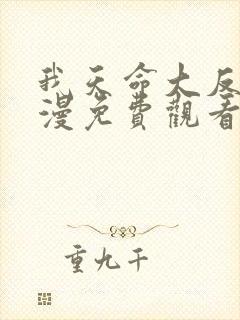 我天命大反
漫免費觀看
重九千